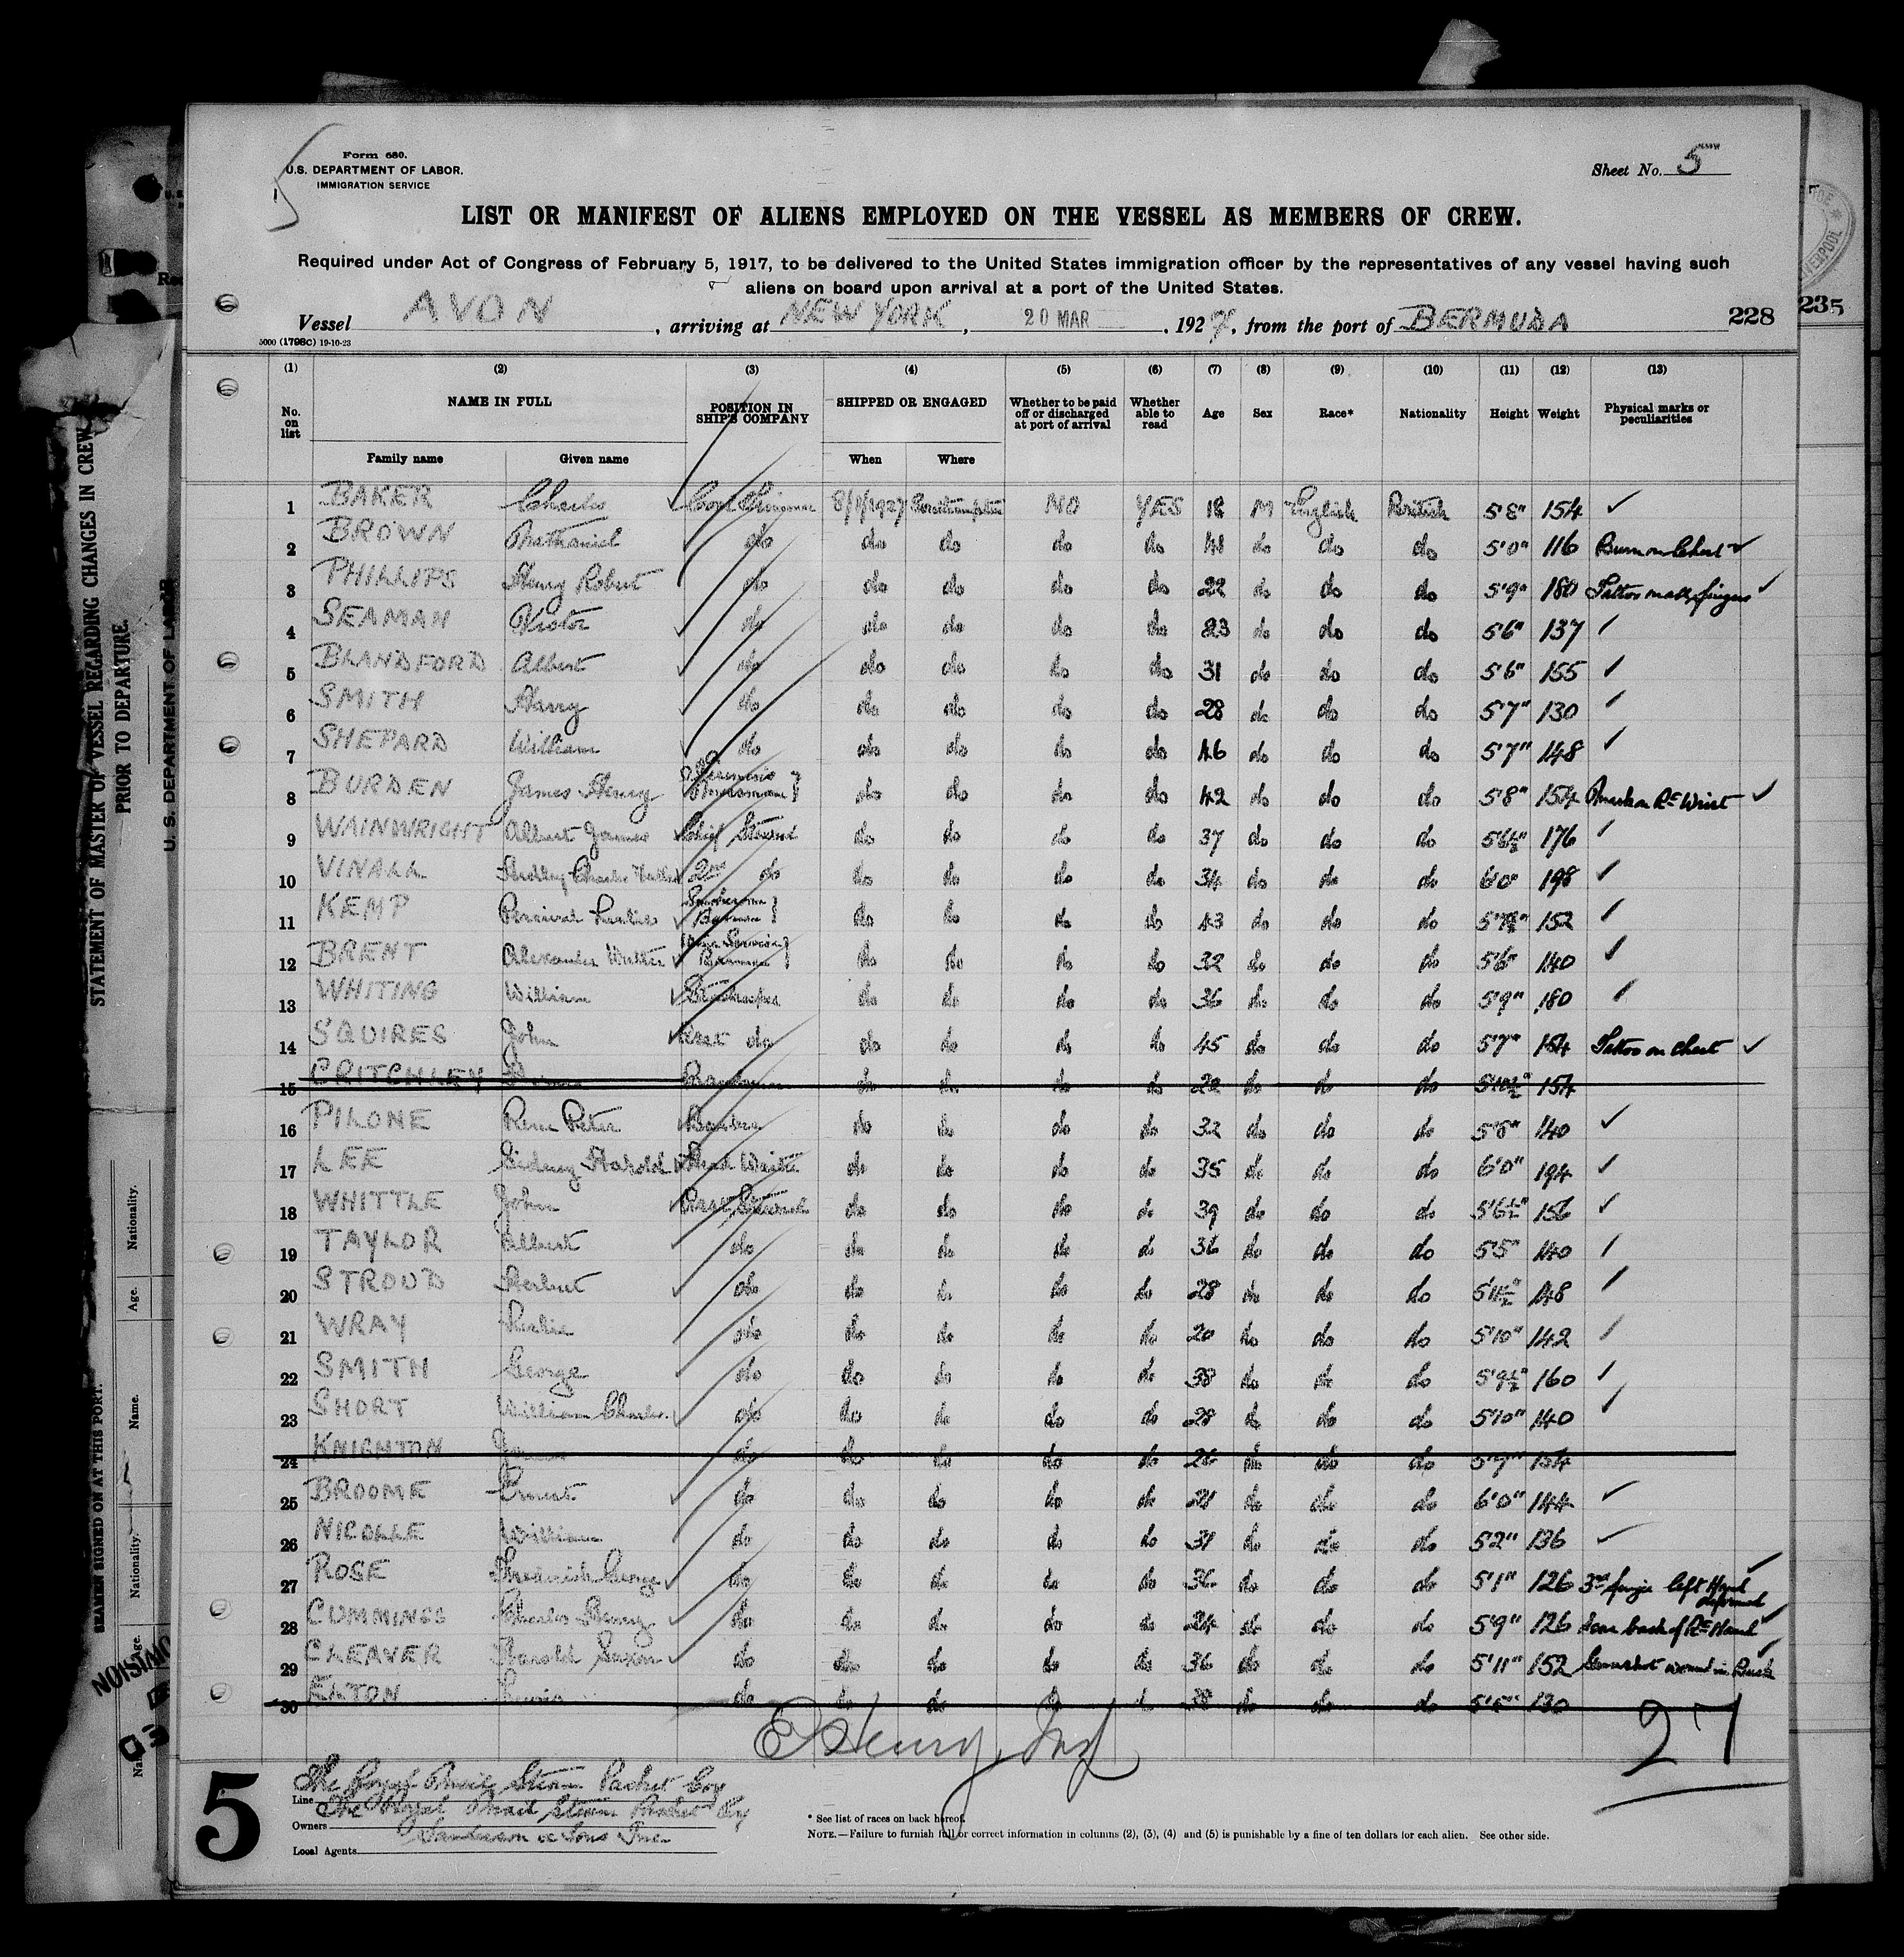 Form 680.
U.S. DEPARTMENT OF LABOR.
IMMIGRATION SERVICE
Sheet No. 5
LIST OR MANIFEST OF ALIENS EMPLOYED ON THE VESSEL AS MEMBERS OF CREW.
Required under Act of Congress of February 5, 1917, to be delivered to the United States immigration officer by the representatives of any vessel having such
aliens on board upon arrival at a port of the United States.
Vessel AVON, arriving at NEW YORK, 20 MAR, 1927, from the port of BERMUDA 228
235
5000 (1798C) 19-10-23
(1) (2) (3) (4) (5) (6) (7) (8) (9) (10) (11) (12) (13)
No. on list NAME IN FULL POSITION IN SHIP'S COMPANY SHIPPED OR ENGAGED Whether to be paid off or discharged at port of arrival Whether able to read Age Sex Race* Nationality Height Weight Physical marks or peculiarities
Family name Given name When Where
1 BAKER Charles 8/1/1927 Southampton NO YES 18 M English British 5'8" 154
2 BROWN Nathaniel do do do do do do do do 5'0" 116 Burn on Chest
3 PHILLIPS Henry Robert do do do do do 22 do do do 5'9" 180 Tattoo marks fingers
4 SEAMAN Victor do do do do do 23 do do do 5'6" 137
5 BLANDFORD Albert do do do do do 31 do do do 5'6" 155
6 SMITH Harry do do do do do 28 do do do 5'7" 130
7 SHEPARD William do do do do do 46 do do do 5'7" 148
8 BURDEN James Henry do do do do 42 do do do 5'8" 154 Mark on Rt Wrist
9 WAINWRIGHT Albert James Chief Steward do do do do 37 do do do 5'6½" 176
10 VINALL Charles 2nd do do do do do 34 do do do 6'0" 198
11 KEMP Percival Leslie do do do do 43 do do do 152
12 BRENT Alexander Walter Barman do do do do 32 do do do 5'6" 140
13 WHITING William Storekeeper do do do do 36 do do do 5'9" 180
14 SQUIRES John Asst do do do do do 45 do do do 5'7" 154 Tattoo on Chest
15 CRITCHLEY do do do do 22 do do do 5'10½" 154
16 PILONE Peter Barber do do do do 32 do do do 140
17 LEE Sidney Harold Head Waiter do do do do 35 do do do 6'0" 194
18 WHITTLE John Asst Steward do do do do 39 do do do 5'6½" 156
19 TAYLOR Albert do do do do do 36 do do do 5'5" 140
20 STROUD Herbert do do do do do 28 do do do 148
21 WRAY Leslie do do do do do 20 do do do 5'10" 142
22 SMITH George do do do do do 38 do do do 5'9½" 160
23 SHORT William Charles do do do do do 28 do do do 5'10" 140
24 KNIGHTON James do do do do do 26 do do do 5'7" 154
25 BROOME Ernest do do do do do 21 do do do 6'0" 144
26 NICOLLE William do do do do do 31 do do do 5'2" 136
27 ROSE Frederick George do do do do do 36 do do do 5'1" 126 3rd finger left Hand deformed
28 CUMMINGS Charles Henry do do do do do 24 do do do 5'9" 126 Scar back of Rt Hand
29 CLEAVER Harold Saxon do do do do do 36 do do do 5'11" 152 Gunshot wound in Back
30 ELTON Lewis do do do do do 38 do do do 130
27
5
The Royal Mail Steam Packet Coy
Line The Royal Mail Steam Packet Coy
Owners Sanderson & Sons Inc.
Local Agents
* See list of races on back hereof.
NOTE.—Failure to furnish full or correct information in columns (2), (3), (4) and (5) is punishable by a fine of ten dollars for each alien. See other side.
STATEMENT OF MASTER OF VESSEL REGARDING CHANGES IN CREW
PRIOR TO DEPARTURE.
U. S. DEPARTMENT OF LABOR
SIGNED ON AT THIS PORT.
Nationality.
Age.
Name.
Nationality.
Age.